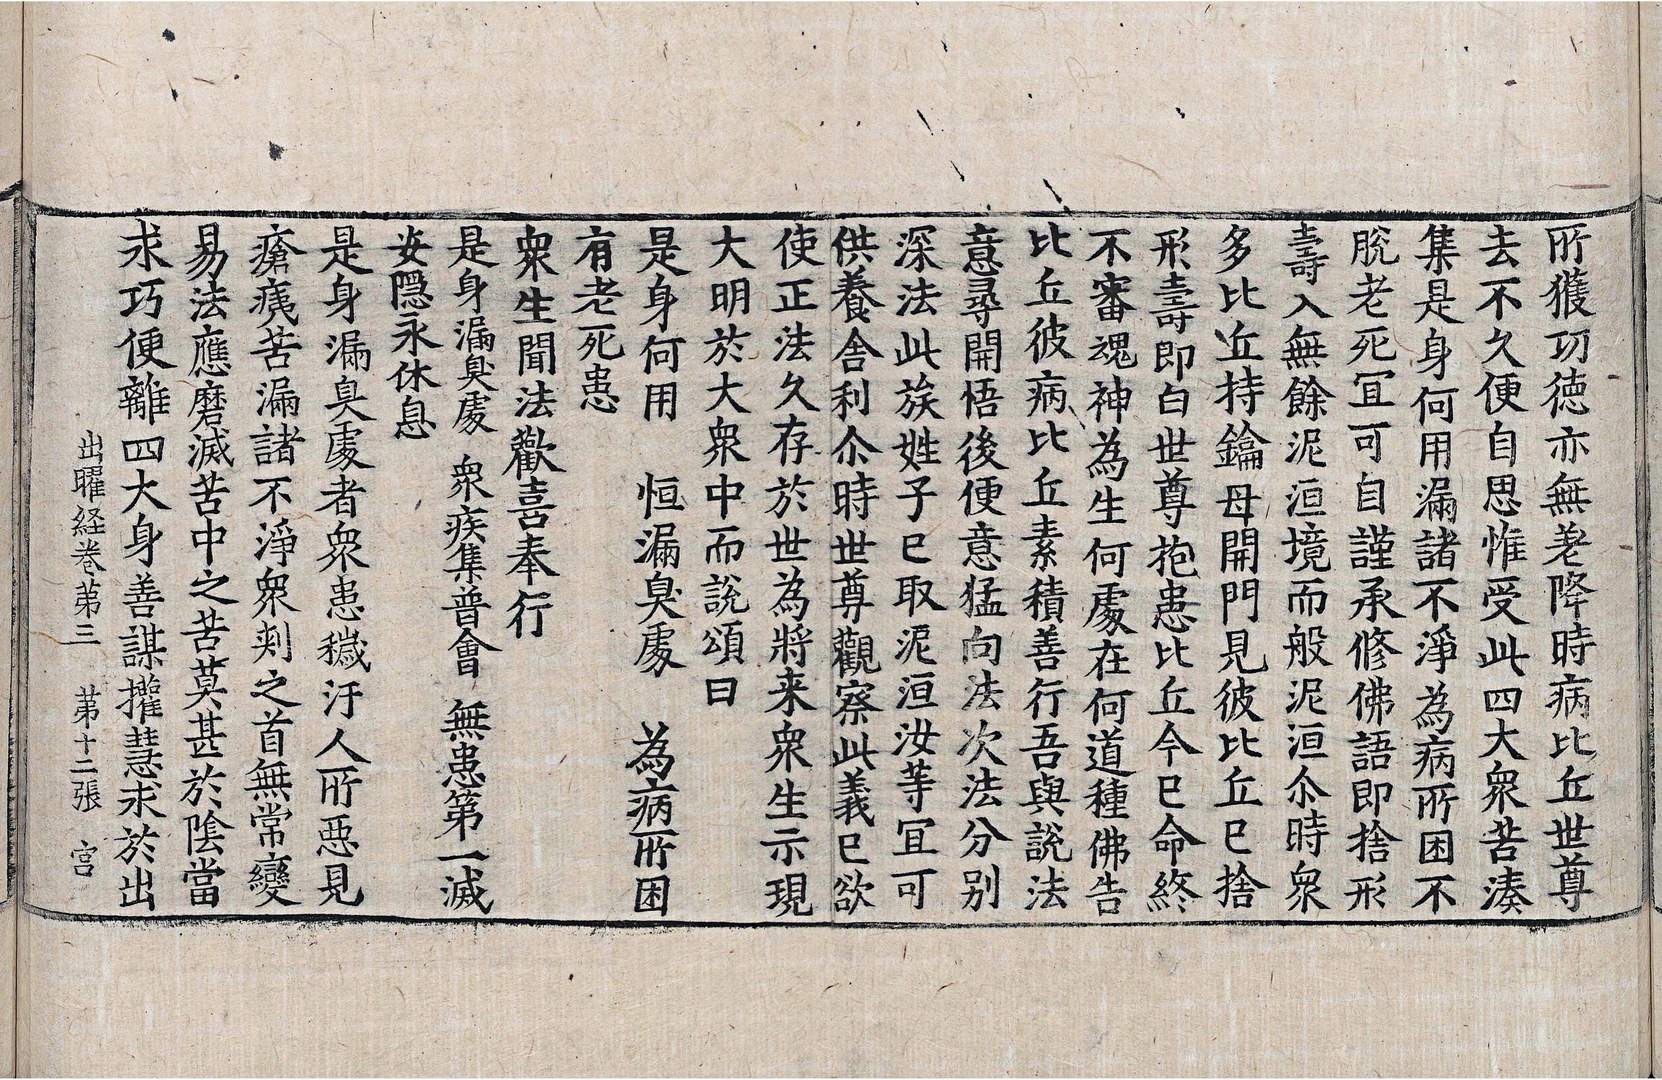 所獲功德亦無差降時病比丘世尊
去不久便自思惟受此四大衆苦湊
集是身何用漏諸不淨為病所困不
脫老死冝可自謹承修佛語即捨形
壽入無餘泥洹境而般泥洹尒時衆
多比丘持鑰母開門見彼比丘已捨
形壽即白世尊抱患比丘今已命終
不審魂神為生何處在何道種佛告
比丘彼病比丘素積善行吾與説法
意尋開悟後便意猛向法次法分別
深法此族姓子已取泥洹汝等冝可
供養舍利尒時世尊觀察此義已欲
使正法久存於世為將来衆生示現
大明於大衆中而説頌曰
是身何用　恒漏臭處　為病所困
有老死患
衆生聞法歡喜奉行
是身漏臭處　衆疾集普會　無患第一滅
安隱永休息
是身漏臭處者衆患穢汙人所惡見
瘡痍苦漏諸不淨衆剌之首無常變
易法應磨滅苦中之苦莫甚於陰當
求巧便離四大身善謀權慧求於出
出曜経巻第三　第十二張　宮